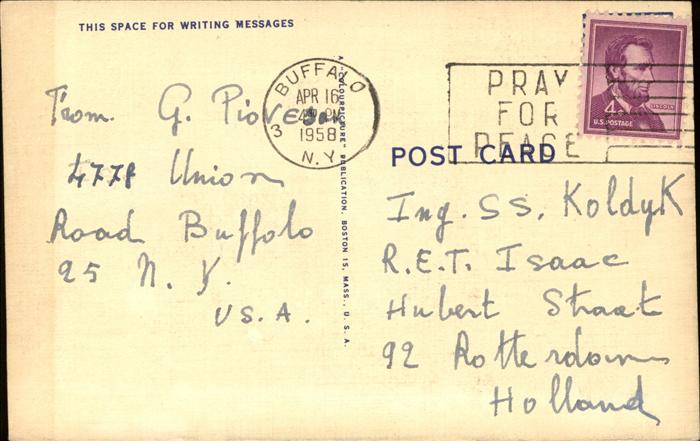 THIS SPACE FOR WRITING MESSAGES
From. G. Piovesan
4778 Union
Road Buffalo
25 N. Y.
U.S.A.
BUFFALO
APR 16
PM
3
1958
N.Y.
A "COLOURPICTURE" PUBLICATION, BOSTON 15, MASS., U. S. A.
PRAY
FOR
PEACE
4¢
LINCOLN
U.S. POSTAGE
POST CARD
Ing. SS. KoldyK
R.E.T. Isaac
Hubert Straat
92 Rotterdam
Holland